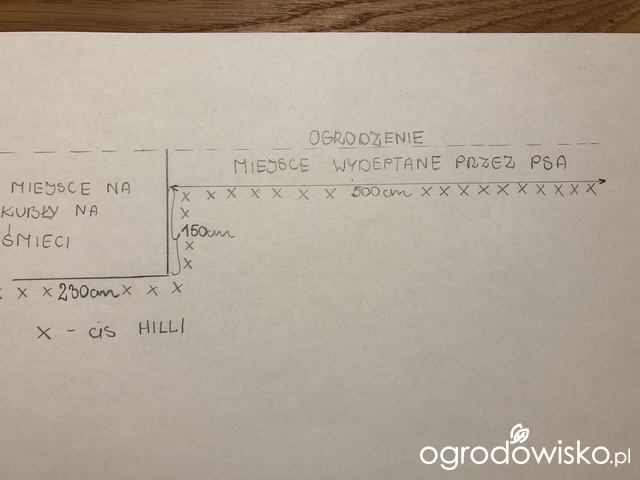 OGRODZENIE
MIEJSCE WYDEPTANE PRZEZ PSA
MIEJSCE NA
KUBŁY NA
ŚMIECI
x x x x x x x 500cm x x x x x x x x x x
x
150cm
x
x
x x x 230cm x x x
x - cis HILLI
ogrodowisko.pl